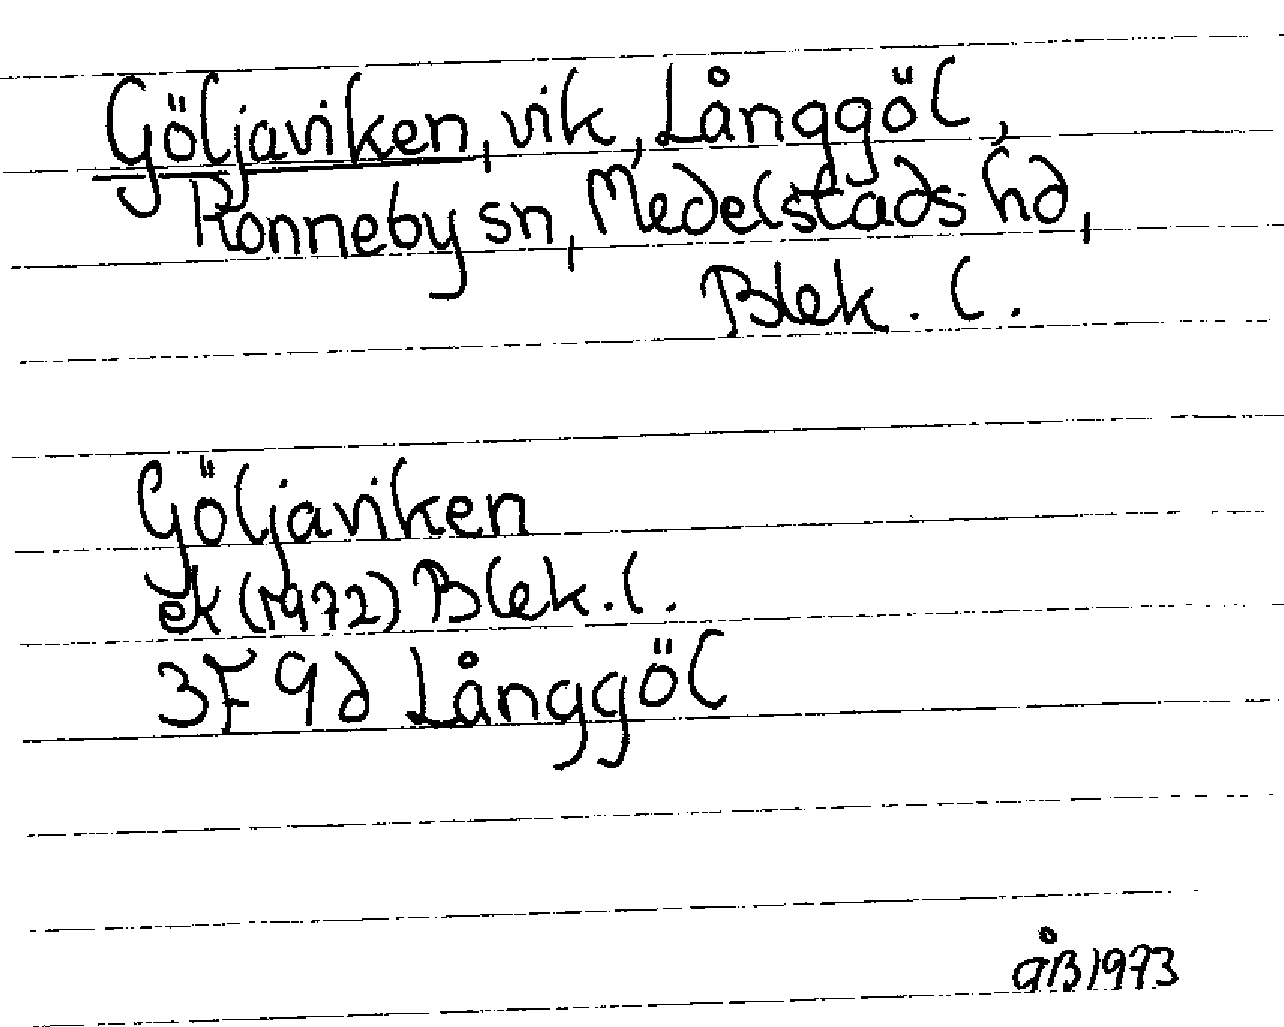 Göljaviken, vik, Långgöl,
Ronneby sn, Medelstads hd,
Blek. l.
Göljaviken
ek (1972) Blek. l.
3F 9d Långgöl
åB 1973